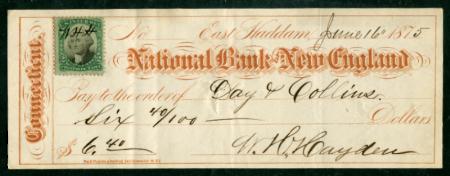 No East Haddam, June 16 1875
National Bank of New England
Pay to the order of Day & Collins.
Six 40/100 Dollars
$ 6.40 W. H. Hayden
Connecticut.